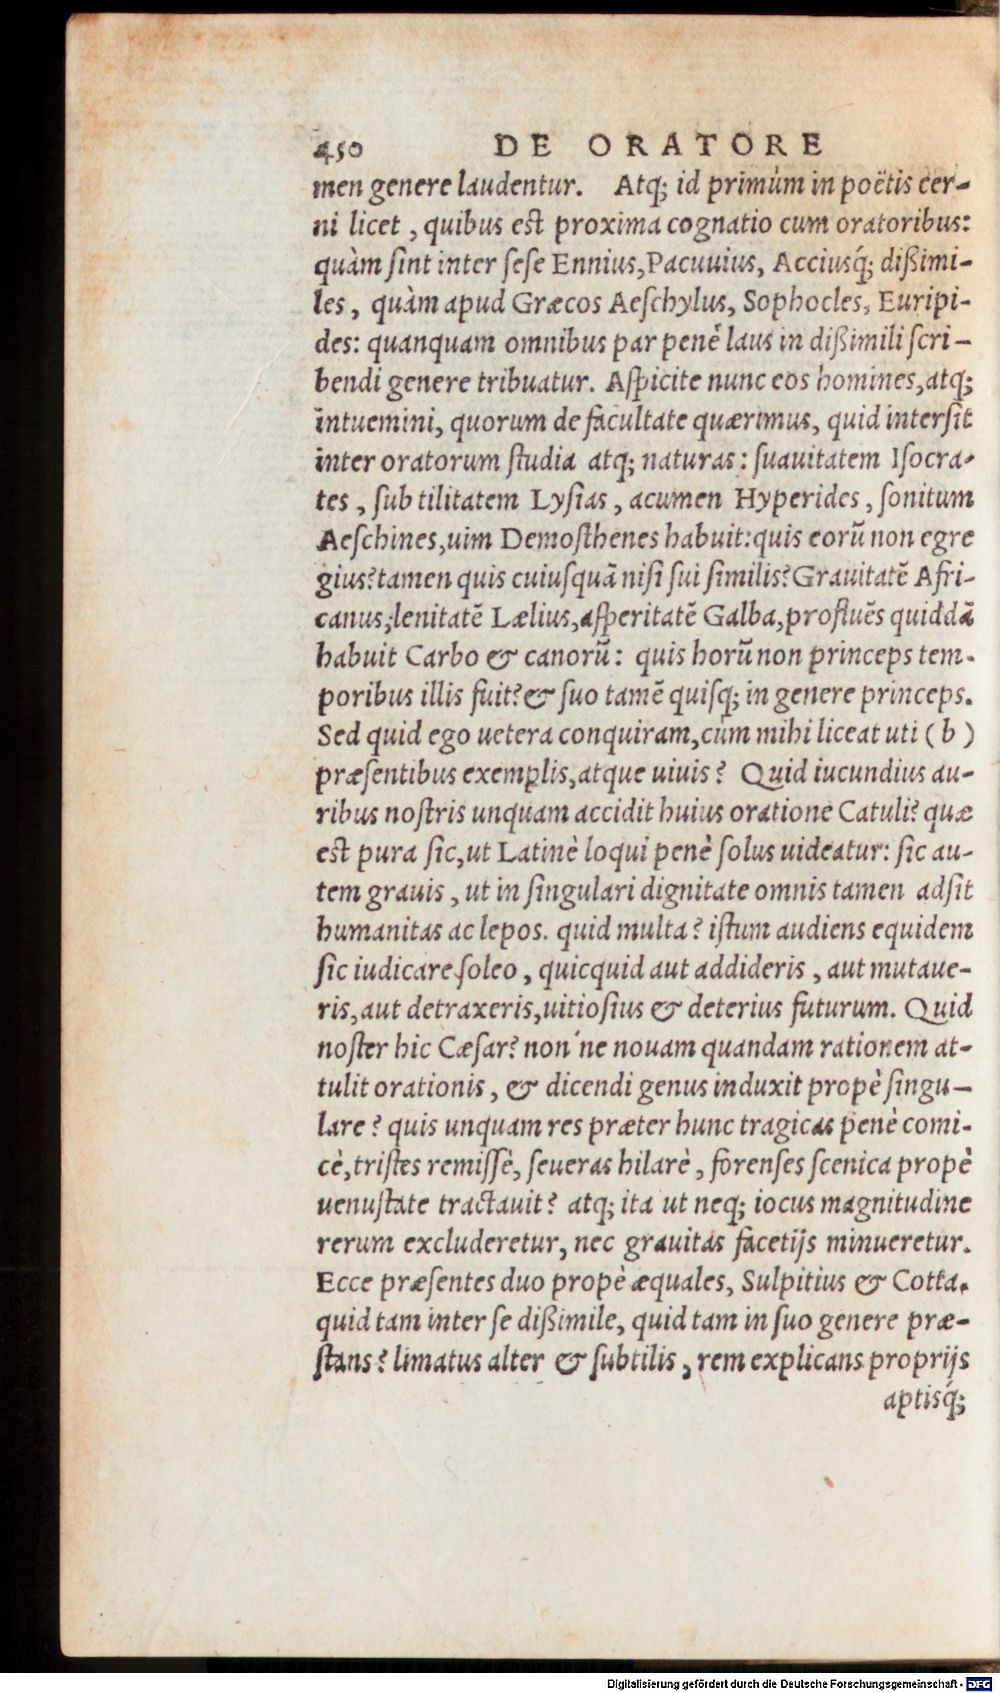 450 DE ORATORE
men genere laudentur. Atq; id primùm in poëtis cer-
ni licet, quibus est proxima cognatio cum oratoribus:
quàm ſint inter ſeſe Ennius, Pacuuius, Acciusq́; dißimi-
les, quàm apud Græcos Aeſchylus, Sophocles, Euripi-
des: quanquam omnibus par penè laus in dißimili ſcri-
bendi genere tribuatur. Aſpicite nunc eos homines, atq;
intuemini, quorum de facultate quærimus, quid interſit
inter oratorum ſtudia atq; naturas: ſuauitatem Iſocra-
tes, ſub tilitatem Lyſias, acumen Hyperides, ſonitum
Aeſchines, uim Demoſthenes habuit: quis eorũ non egre
gius? tamen quis cuiuſquã niſi ſui ſimilis? Grauitatẽ Afri-
canus, lenitatẽ Lælius, aſperitatẽ Galba, profluẽs quiddã
habuit Carbo & canorũ: quis horũ non princeps tem-
poribus illis fuit? & ſuo tamẽ quiſq; in genere princeps.
Sed quid ego uetera conquiram, cùm mihi liceat uti (b)
præſentibus exemplis, atque uiuis? Quid iucundius au-
ribus noſtris unquam accidit huius oratione Catuli? quæ
est pura ſic, ut Latinè loqui penè ſolus uideatur: ſic au-
tem grauis, ut in ſingulari dignitate omnis tamen adſit
humanitas ac lepos. quid multa? iſtum audiens equidem
ſic iudicare ſoleo, quicquid aut addideris, aut mutaue-
ris, aut detraxeris, uitioſius & deterius futurum. Quid
noſter hic Cæſar? non'ne nouam quandam rationem at-
tulit orationis, & dicendi genus induxit propè ſingu-
lare? quis unquam res præter hunc tragicas penè comi-
cè, triſtes remiſſè, ſeueras hilarè, forenſes ſcenica propè
uenuſtate tractauit? atq; ita ut neq; iocus magnitudine
rerum excluderetur, nec grauitas facetijs minueretur.
Ecce præſentes duo propè æquales, Sulpitius & Cotta.
quid tam inter ſe dißimile, quid tam in ſuo genere præ-
ſtans? limatus alter & ſubtilis, rem explicans proprijs
aptisq́;
Digitalisierung gefördert durch die Deutsche Forschungsgemeinschaft - DFG